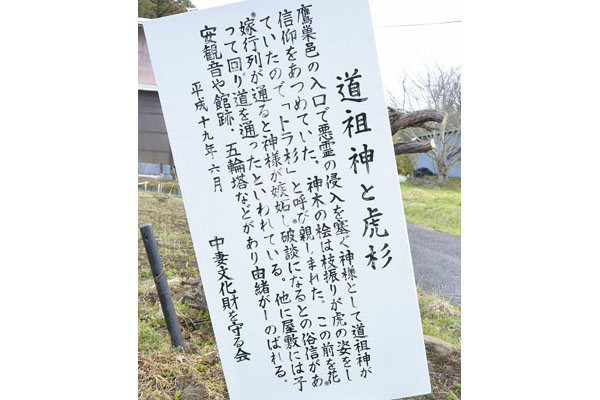 道祖神と虎杉
鷹巣邑の入口で悪霊の侵入を塞ぐ神様として道祖神が
信仰をあつめていた。神木の桧は枝振りが虎の姿をし
ていたので「トラ杉」と呼び親しまれた。この前を花
嫁行列が通ると神様が嫉妬し破談になるとの俗信があ
って回り道を通ったといわれている。他に屋敷には子
安観音や館跡・五輪塔などがあり由緒がしのばれる。
平成十九年六月
中妻文化財を守る会